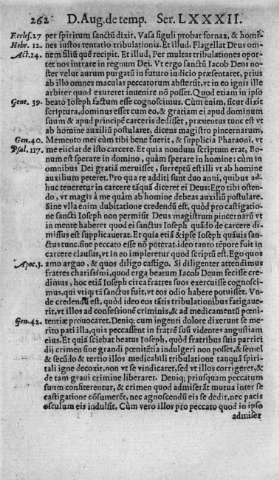 262 D. Aug. de temp. Ser. LXXXII.
Eccles. 27 per spiritum sanctũ dixit, Vasa figuli probat fornax, & homi-
Hebr. 12. nes iustos tentatio tribulationis. Et illud, Flagellat Deus om-
nem filiũ quẽ recipit. Et illud, Per multas tribulationes opor-
Act. 14. tet nos intrare in regnum Dei. Vt ergo sanctũ Iacob Deus no-
ster velut aurum purgatũ in futuro iudicio præsentaret, prius
ab illo omnes maculas peccatorum abstersit, vt in eo ignis ille
arbiter quod exureret inuenire nõ posset. Quod etiam in ipso
Gene. 39. beato Ioseph factum esse cognoscimus. Cùm enim, sicut dixit
scriptura, dominus esset cum eo, & gratiam ei apud dominum
suum & apud principẽ carceris dedisset, præsumere tentauit vt
ab homine auxiliũ postularet, dicens magistro pincernarum,
Gen. 40. Memento mei cùm tibi bene fuerit, & suggeris Pharaoni, vt
Psal. 117. me eiiciat de isto carcere. Et quia nondum scriptum erat, Bo-
num est sperare in domino, quàm sperare in homine: cùm in
omnibus Dei gratiã meruisset, surreptũ est illi vt ab homine
auxilium peteret. Pro qua re additi sunt duo anni, quibus ad-
huc teneretur in carcere tãquã diceret ei Deus: Ego tibi osten-
do, vt magis à me quàm ab homine debeas auxiliũ postulare.
Sine vlla enim dubitatione credendũ est, quòd pro castigatio-
ne sancti Ioseph non permisit Deus magistrum pincernarũ vt
in mente haberet quod ei sanctus Ioseph quãdo de carcere di-
missus est supplicauerat. Et quia etiã & ipse Ioseph quãuis san-
ctus tunc, sine peccato esse nõ poterat: ideo tanto tẽpore fuit in
carcere clausus, vt in eo impleretur quod scriptũ est: Ego quos
Apoc. 3. amo arguo, & quos diligo castigo. Si diligenter attenditis
fratres charissimi, quod erga beatum Iacob Deum fecisse cre-
didimus, hoc etiã Ioseph circa fratres suos exercuisse cognosci-
mus, qui vtique sanctus fuit, vt eos odio habere potuisset. Vn-
de credendũ est, quòd ideo eos tãtis tribulationibus fatigaue-
rit, vt illos ad confessionẽ criminis, & ad medicamentũ pœni-
Gen. 42. tentiæ prouocaret. Denique cum ingenti dolore dixerunt se me-
rito pati illa, quia peccassent in fratrẽ suũ videntes angustiam
eius. Et quia sciebat beatus Ioseph, quòd fratribus suis parrici-
dij crimen sine grandi pœnitẽtia indulgeri non posset, & semel
& secũdo & tertio illos medicabili tribulatione tanquã spiri-
tali igne decoxit, non vt se vindicaret, sed vt illos corrigeret, &
de tam graui crimine liberaret. Denique priusquam peccatum
suum confiterentur, & crimen quod admiserant inter se
castigatione cõsumeret, nec agnoscendũ eis se dedit, nec pacis
osculum eis indulsit. Cùm vero illos pro peccato quod in ipso
admiser